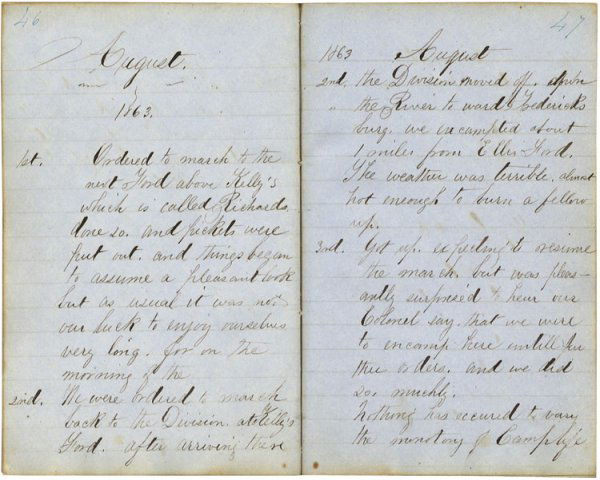 46
August.
1863.
1st. Ordered to march to the
next Ford above Kelly's
which is called Richards.
done so. and pickets were
put out. and things began
to assume a pleasant look
but as usual it was not
our luck to enjoy ourselves
very long. for on the
morning of the
2nd. We were ordered to march
back to the Division. at Kelly's
Ford. after arriving there
47
1863 August
2nd. the Division moved off. down
" the River to ward Fredericks
burg. we encampted about
1 miles from Ellis Ford.
The weather was terrible. almost
hot enough to burn a fellow
up.
3rd. Got up. expecting to resume
the march. but was pleas-
antly surprised to hear our
Colonel say. that we were
to encamp here untill fur
ther orders. and we did
so.
Nothing has occured to vary
the monotony of Camp life